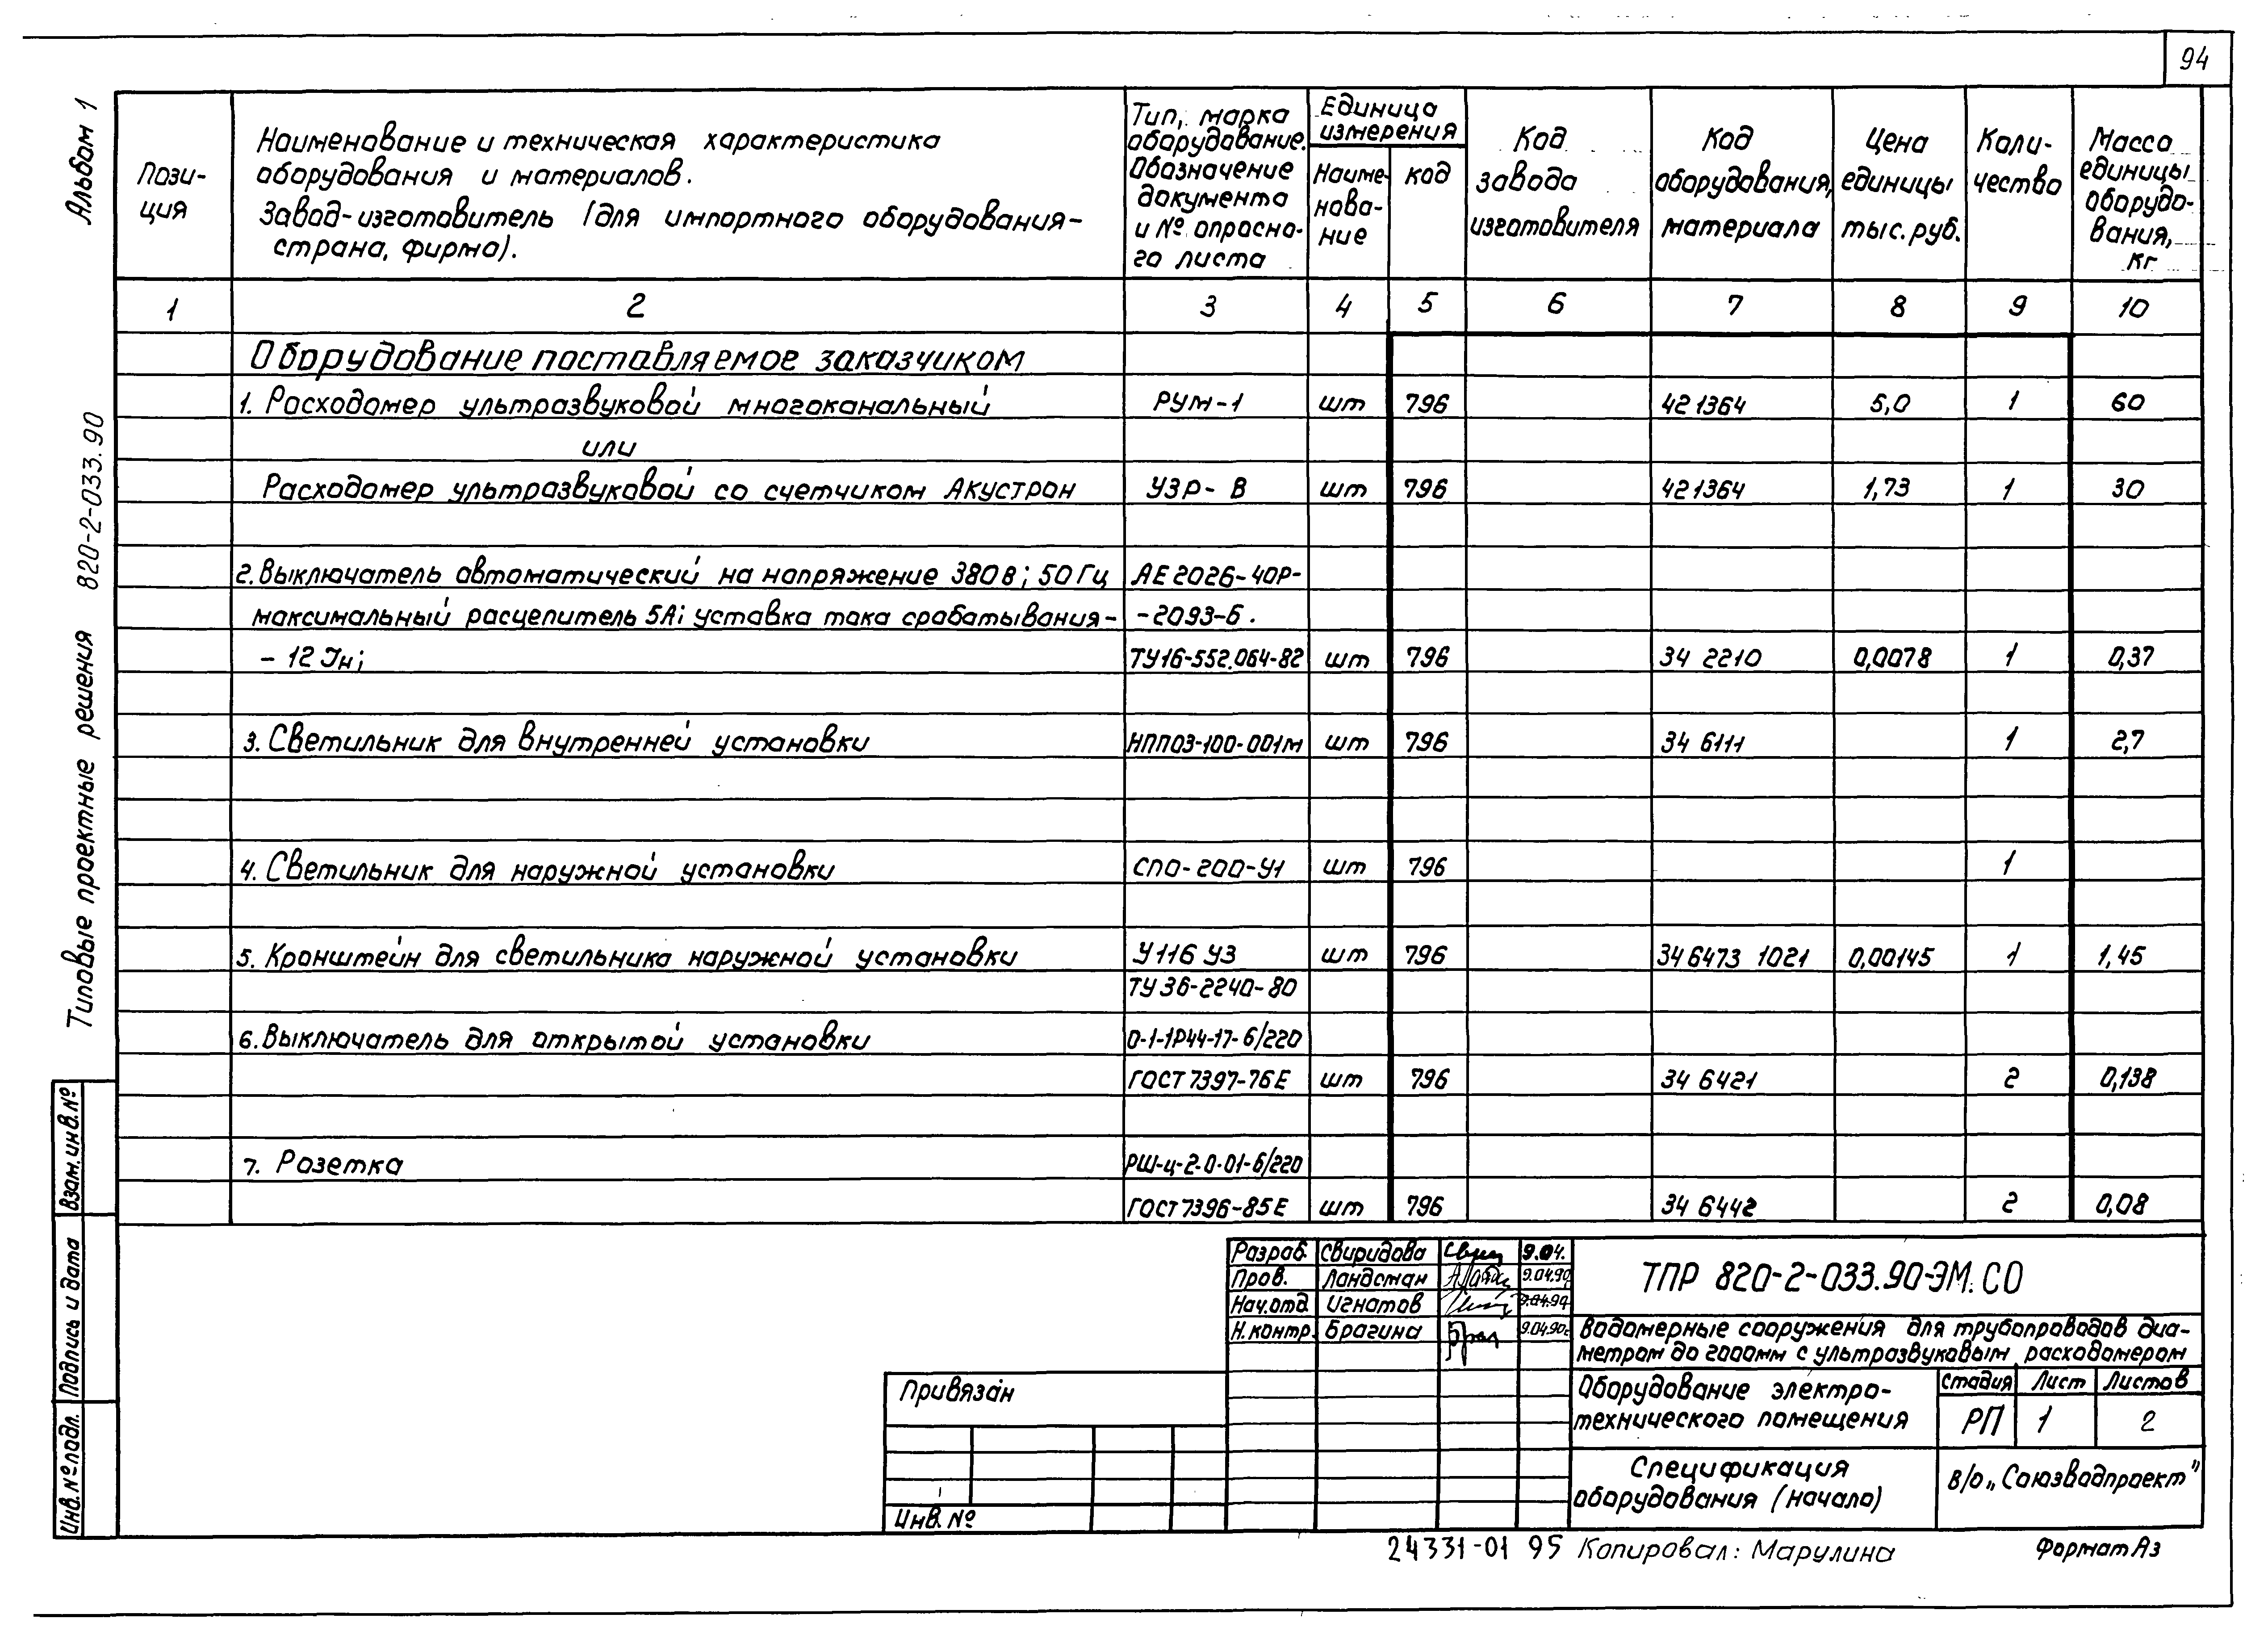 94
Альбом 1
Типовые проектные решения 820-2-033.90
Пози-
ция
Наименование и техническая характеристика
оборудования и материалов.
Завод-изготовитель (для импортного оборудования-
страна, фирма).
Тип, марка
оборудование.
Обозначение
документа
и № опросно-
го листа
Единица
измерения
Наиме-
нова-
ние
код
Код
завода
изготовителя
Код
оборудования,
материала
Цена
единицы
тыс. руб.
Коли-
чество
Масса
единицы
оборудо-
вания,
кг
1 2 3 4 5 6 7 8 9 10
Оборудование поставляемое заказчиком
1. Расходомер ультразвуковой многоканальный РУМ-1 шт 796 421364 5,0 1 60
или
Расходомер ультразвуковой со счетчиком Акустрон УЗР-В шт 796 421364 1,73 1 30
2. Выключатель автоматический на напряжение 380 в; 50 Гц АЕ 2026-40Р-
максимальный расцепитель 5А; уставка тока срабатывания- -2093-Б.
- 12 Iн; ТУ16-552.064-82 шт 796 34 2210 0,0078 1 0,37
3. Светильник для внутренней установки НПП03-100-001М шт 796 34 6111 1 2,7
4. Светильник для наружной установки СПО-200-У1 шт 796 1
5. Кронштейн для светильника наружной установки У116 У3 шт 796 34 6473 1021 0,00145 1 1,45
ТУ 36-2240-80
6. Выключатель для открытой установки 0-1-1Р44-17-6/220
ГОСТ 7397-76Е шт 796 34 6421 2 0,138
7. Розетка РШ-ц-2-0-01-6/220
ГОСТ 7396-85Е шт 796 34 6442 2 0,08
Взам. инв. №
Подпись и дата
Инв. № подл.
Разраб. Свиридова 9.04.
Пров. Ландсман 9.04.90
Нач.отд Игнатов 9.04.90
Н.контр. Брагина 9.04.90г
ТПР 820-2-033.90-ЭМ.СО
Водомерные сооружения для трубопроводов диа-
метром до 2000мм с ультразвуковым расходомером
Оборудование электро-
технического помещения
Стадия Лист Листов
РП 1 2
Спецификация
оборудования (начало)
В/О „Союзводпроект"
Привязан
Инв. №
24331-01 95 Копировал: Марулина Формат А3